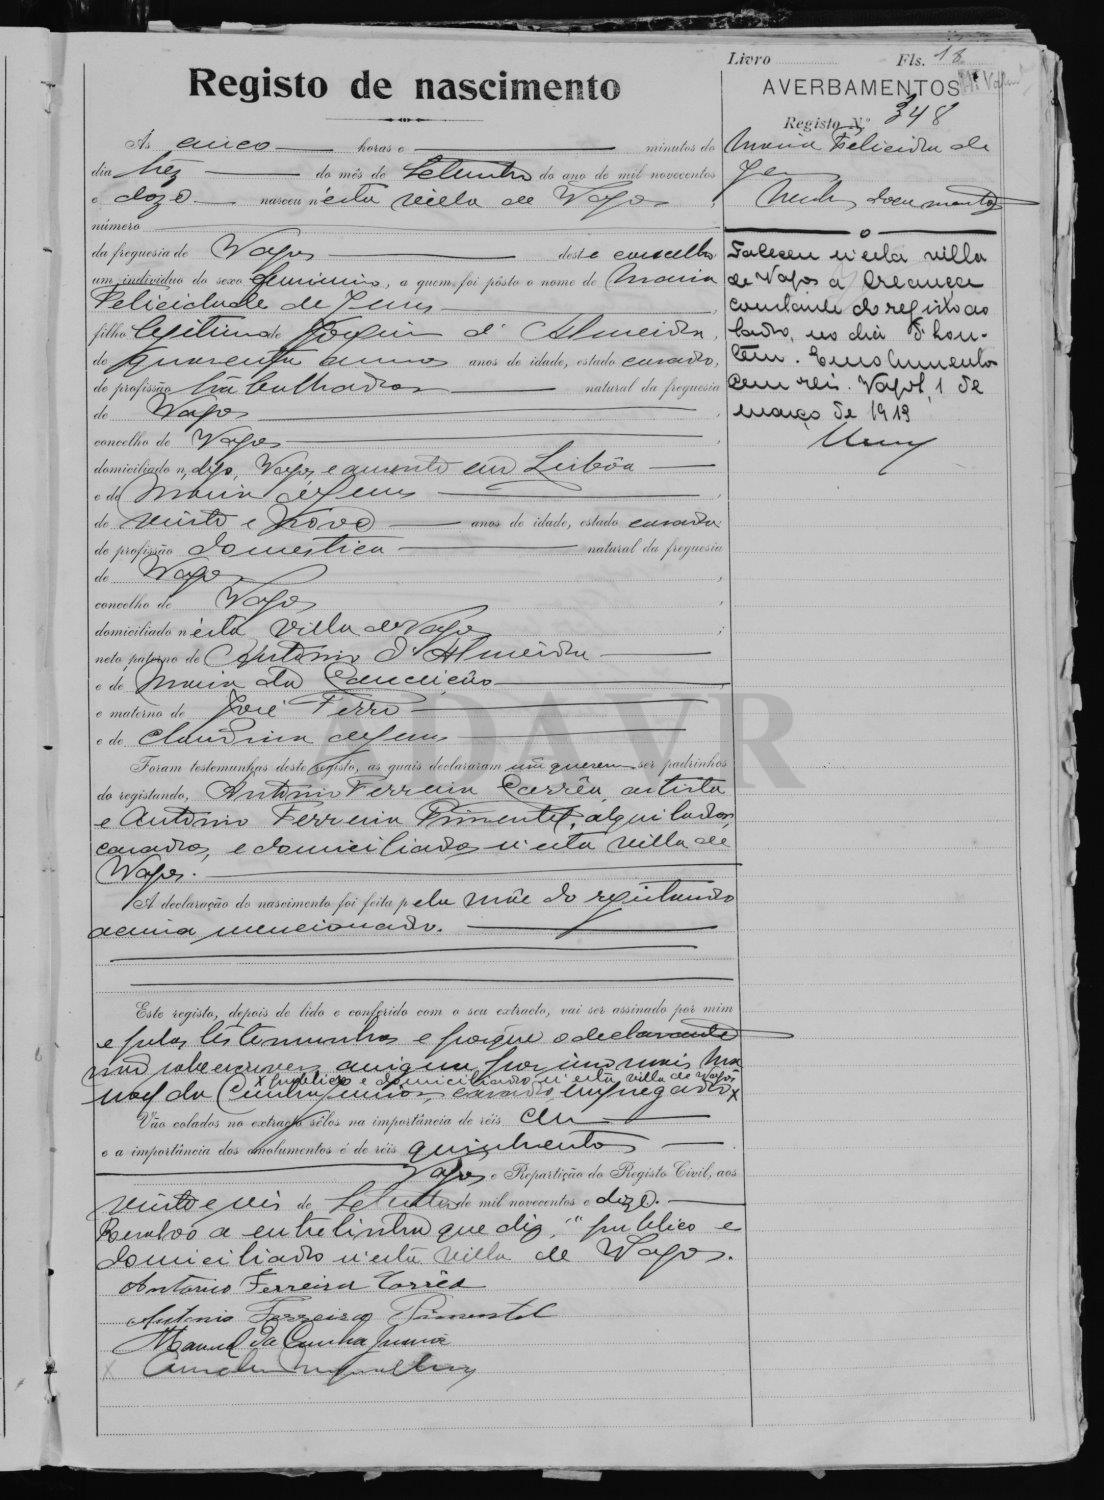 Livro Fls. 18
Registo de nascimento
AVERBAMENTOS
Registo Nº 348
Ás cinco horas e minutos do
dia trez do mês de Setembro do ano de mil novecentos
e doze nasceu n'esta villa de Vagos
número
da freguesia de Vagos deste concelho
um individuo do sexo feminino, a quem foi pôsto o nome de Maria
Felicidade de Jesus
filho legitimo de Joaquim d'Almeida,
de quarenta annos anos de idade, estado casado,
de profissão trabalhador natural da freguesia
de Vagos
concelho de Vagos
domiciliado n, digo, Vagos, e ausente em Lisbôa
e de Maria de Jesus
de vinte e nove anos de idade, estado casada
de profissão domestica natural da freguesia
de Vagos
concelho de Vagos
domiciliado n'esta villa de Vagos
neto paterno de Antonio d'Almeida
e de Maria da Conceição
e materno de José Ferro
e de Claudina de Jesus
Foram testemunhas deste registo, as quais declararam não querem ser padrinhos
do registando, Antonio Ferreira Corrêa, artista
e Antonio Ferreira Pimentel, alquilador,
casados, e domiciliados n'esta villa de
Vagos.
A declaração do nascimento foi feita pela mãe do registando
acima mencionado.
Este registo, depois de lido e conferido com o seu extracto, vai ser assinado por mim
e pelas testemunhas e porque o declarante
não sabe escrever assigna por imo mais Ma
x publico e domiciliado n'esta villa de Vagos
noel da Cunha Junior, casado, empregado x
Vão colados no extracto sêlos na importância de réis cem
e a importância dos emolumentos é de réis quinhentos
Vagos e Repartição do Registo Civil, aos
vinte e seis de Setembro de mil novecentos e doze.
Resalvo a entrelinha que diz: "publico e
domiciliado n'esta villa de Vagos.
Antonio Ferreira Corrêa
Antonio Ferreira Pimentel
Manuel da Cunha Junior
Maria Felicidade de
Jesus
documentos
Faleceu n'esta villa
de Vagos a creança
constante do registo ao
lado, no dia d'hon-
tem. Emolumentos
cem reis. Vagos, 1 de
março de 1913
ADAVR